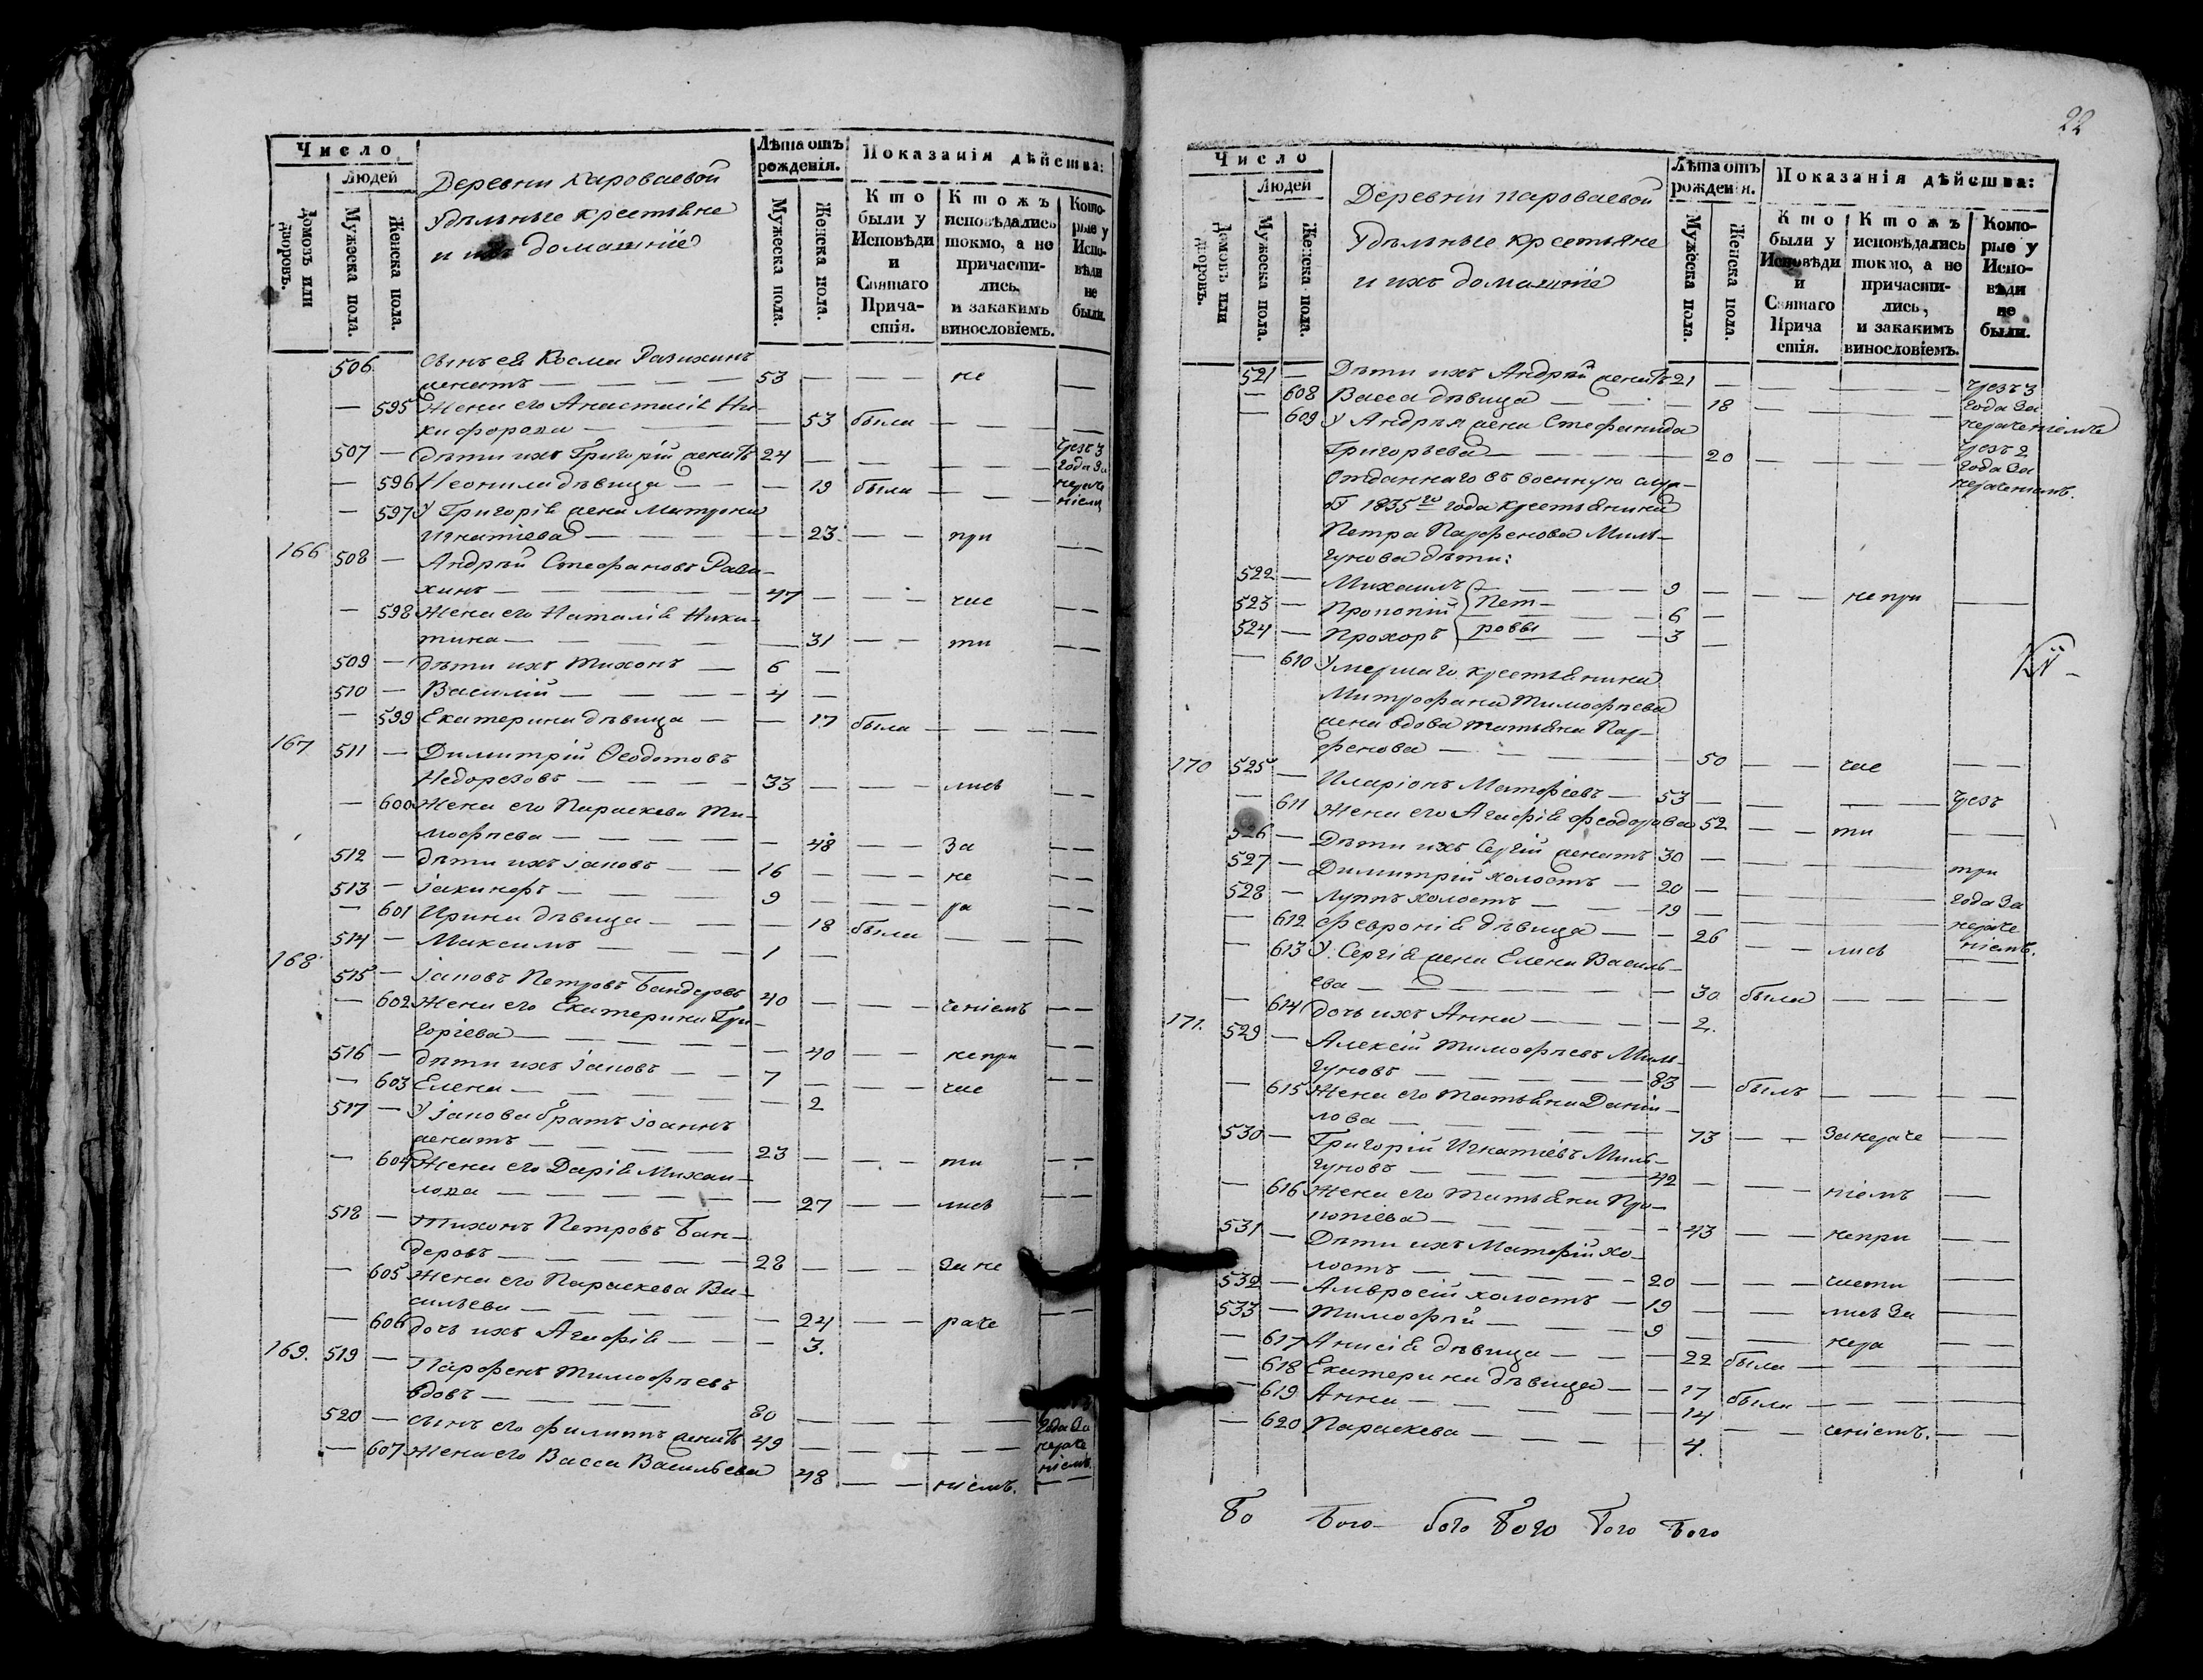 Число
Людей
Домовъ или дворовъ.
Мужеска пола.
Женска пола.
Деревни Кароваевой
Удѣльные крестьяне
и ихъ домашніе
Лѣта отъ рожденія.
Мужеска пола.
Женска пола.
Показанія дѣйства:
Кто были у Исповѣди и Святаго Причастія.
Ктожъ исповѣдались токмо, а не причастились, и закакимъ винословіемъ.
Которые у Исповѣди не были.
506 Сынъ ея Косма Разихинъ
женатъ — 53 — не —
— 595 Жена его Анастасія Ни-
кифорова — 53 была — —
507 — Дѣти ихъ Григорій женатъ 24 — — чрезъ 3 года за нераченіемъ
— 596 Неонила дѣвица — 19 была —
— 597 У Григорія жена Матрона
Игнатіева — 23 — при —
166 508 — Андрей Стефановъ Рази-
хинъ — 47 — час —
— 598 Жена его Наталія Ники-
тина — 31 — ти —
509 — Дѣти ихъ Тихонъ — 6 —
510 — Василій — 4 —
— 599 Екатерина дѣвица — 17 была — —
167 511 — Димитрій Ѳеодотовъ
Недорезовъ — 33 — лись —
— 600 Жена его Параскева Ти-
мофѣева — 48 — за —
512 — Дѣти ихъ Іаковъ — 16 — не —
513 — Іакинфъ — 9 — ра —
— 601 Ирина дѣвица — 18 была — —
514 — Максимъ — 1 —
168 515 — Іаковъ Петровъ Бандеровъ 40 — ченіемъ —
— 602 Жена его Екатерина Гри-
горіева — 40 — не при —
516 — Дѣти ихъ Іаковъ — 7 — час —
— 603 Елена — 2
517 — У Іакова братъ Іоаннъ
женатъ — 23 — ти —
— 604 Жена его Дарія Михаи-
лова — 27 — лись —
518 — Тихонъ Петровъ Бан-
деровъ — 28 — за не —
— 605 Жена его Параскева Ва-
сильева — 24 — раче —
— 606 Дочь ихъ Агафія — 3.
169. 519 — Парфенъ Тимофѣевъ
вдовъ — 80 — —
520 — Сынъ его Филиппъ женатъ 49 — — года за нераченіемъ.
— 607 Жена его Васса Васильева 48 — ніемъ. —
22
Число
Людей
Домовъ или дворовъ.
Мужеска пола.
Женска пола.
Деревни Кароваевой
Удѣльные крестьяне
и ихъ домашніе
Лѣта отъ рожденія.
Мужеска пола.
Женска пола.
Показанія дѣйства:
Кто были у Исповѣди и Святаго Причастія.
Ктожъ исповѣдались токмо, а не причастились, и закакимъ винословіемъ.
Которые у Исповѣди не были.
521 — Дѣти ихъ Андрей женатъ 21 — — чрезъ 3
— 608 Васса дѣвица — 18 — — года за
нераченіемъ
— 609 У Андрея жена Стефанида
Григорьева — 20 — — чрезъ 2 года за нераченіемъ.
Отданнаго въ военную служ-
бу 1835го года крестьянина
Петра Парфенова Миль-
гунова дѣти:
522 — Михаилъ — 9 — не при —
523 — Прокопій } Пет- — 6 —
524 — Прохоръ } ровы — 3 —
— 610 Умершаго крестьянина
Митрофана Тимофѣева
жена вдова Татьяна Пар-
фенова — 50 — час —
170 525 — Иларіонъ Матфіевъ — 53 — — чрезъ
— 611 Жена его Агафія Феодорова 52 — ти —
526 — Дѣти ихъ Сергій женатъ 30 — — три
527 — Димитрій холостъ — 20 — — года за
528 — Луппъ холостъ — 19 — — нераче
ніемъ.
— 612 Февронія дѣвица — 26 — лись
— 613 У Сергія жена Елена Василь-
ева — 30 была — —
— 614 дочь ихъ Анна — 2.
171. 529 — Алексій Тимофѣевъ Миль-
гуновъ — 83 — былъ — —
— 615 Жена его Татьяна Даніи-
лова — 73 — за нераче —
530 — Григорій Игнатіевъ Миль-
гуновъ — 42 — ніемъ —
— 616 Жена его Татьяна Про-
копіева — 43 — не при —
531 — Дѣти ихъ Матфій хо-
лостъ — 20 — части —
532 — Амвросій холостъ — 19 — лись за —
533 — Тимофѣй — 9 — нера —
— 617 Анисія дѣвица — 22 была — —
— 618 Екатерина дѣвица — 17 была — —
— 619 Анна — 14 — ченіемъ. —
— 620 Параскева — 4.
Бо Бого бого Бого Бого Бого